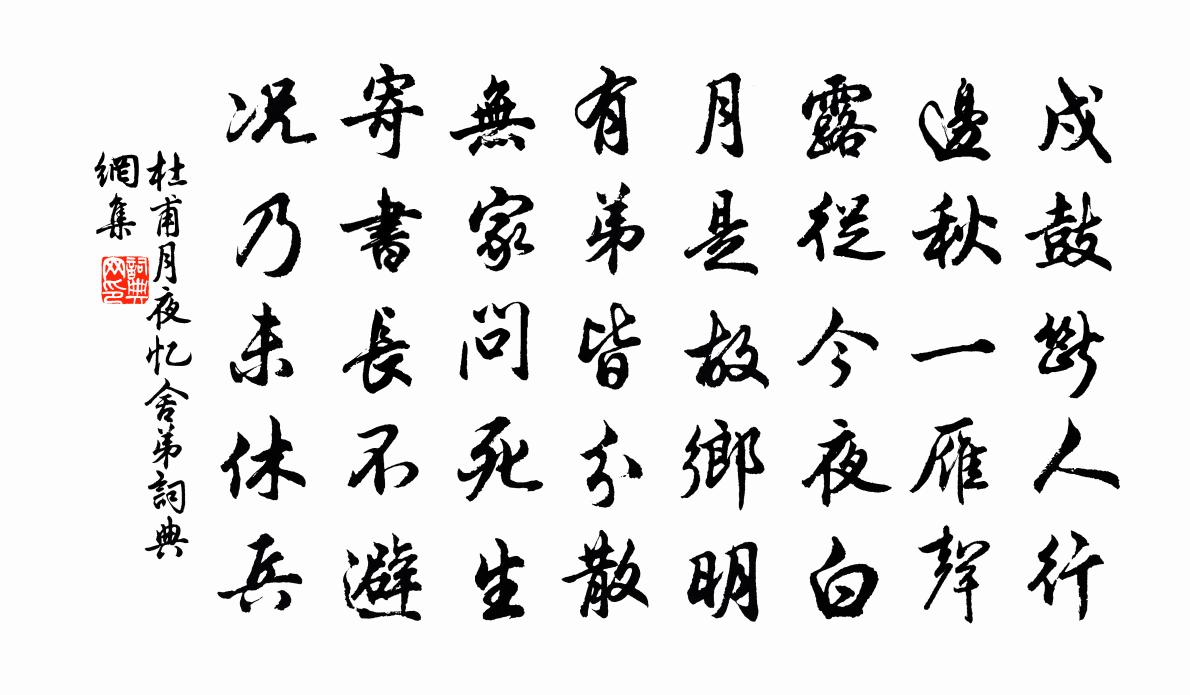 戍鼓斷人行
邊秋一雁聲
露從今夜白
月是故鄉明
有弟皆分散
無家問死生
寄書長不避
况乃未休兵
杜甫月夜忆舍弟詞典
網集
詞典
网印